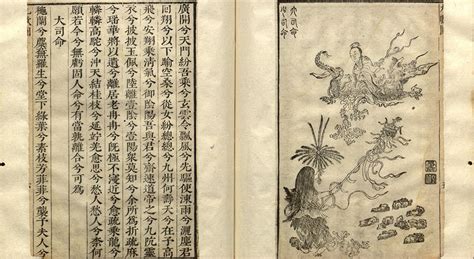 大司命
少司命
廣開兮天門紛吾乘兮玄雲令飄風兮先驅使凍雨兮
翔兮以下踰空桑兮從女紛總總兮九州何壽夭兮在予高
飛兮安翔乘清氣兮御陰陽吾與君兮齋速導帝之兮九阬靈
衣兮披披玉佩兮陸離壹陰兮壹陽衆莫知兮余所爲折疏麻
兮瑤華將以遺兮離居老冉冉兮既極不寖近兮愈疏乘龍兮
轔轔高駝兮沖天結桂枝兮延佇羌愈思兮愁人愁人兮奈何
願若今兮無虧固人命兮有當孰離合兮可爲
大司命
穐蘭兮麋蕪羅生兮堂下綠葉兮素枝芳菲菲兮襲予夫人兮